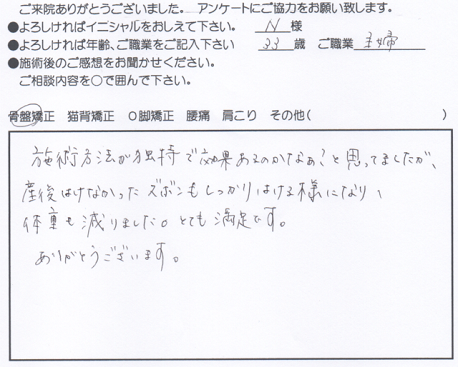 ご来院ありがとうございました。 アンケートにご協力をお願い致します。
●よろしければイニシャルをおしえて下さい。 N 様
●よろしければ年齢、ご職業をご記入下さい 33 歳 ご職業 主婦
●施術後のご感想をお聞かせください。
ご相談内容を○で囲んで下さい。
骨盤矯正 猫背矯正 O脚矯正 腰痛 肩こり その他( )
施術方法が独特で効果あるのかなぁ?と思ってましたが、
産後はけなかったズボンもしっかりはける様になり、
体重も減りました。とても満足です。
ありがとうございます。